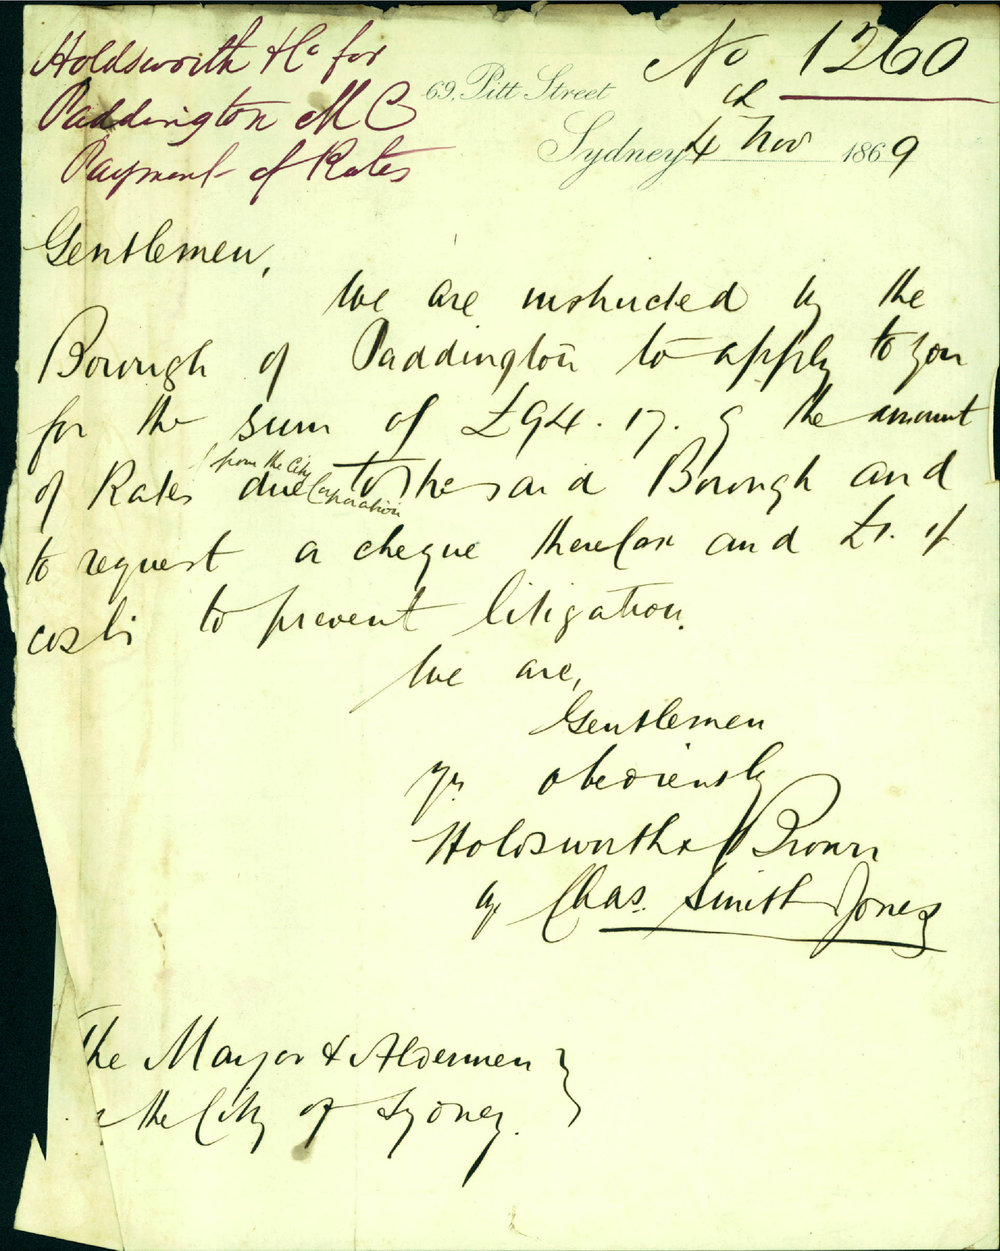 Holdsworth & Co for
Paddington M C
Payment of Rates
No 1260
69, Pitt Street
Sydney 4 Nov 1869
Gentlemen,
We are instructed by the
Borough of Paddington to apply to you
for the sum of £94.17.9 the amount
of Rates due from the City Corporation to the said Borough and
to request a cheque therefor and £1.1/
costs to prevent litigation.
We are,
Gentlemen
Yrs obediently
Holdsworth & Brown
Chas. Smith Jones
The Mayor & Aldermen
the City of Sydney.